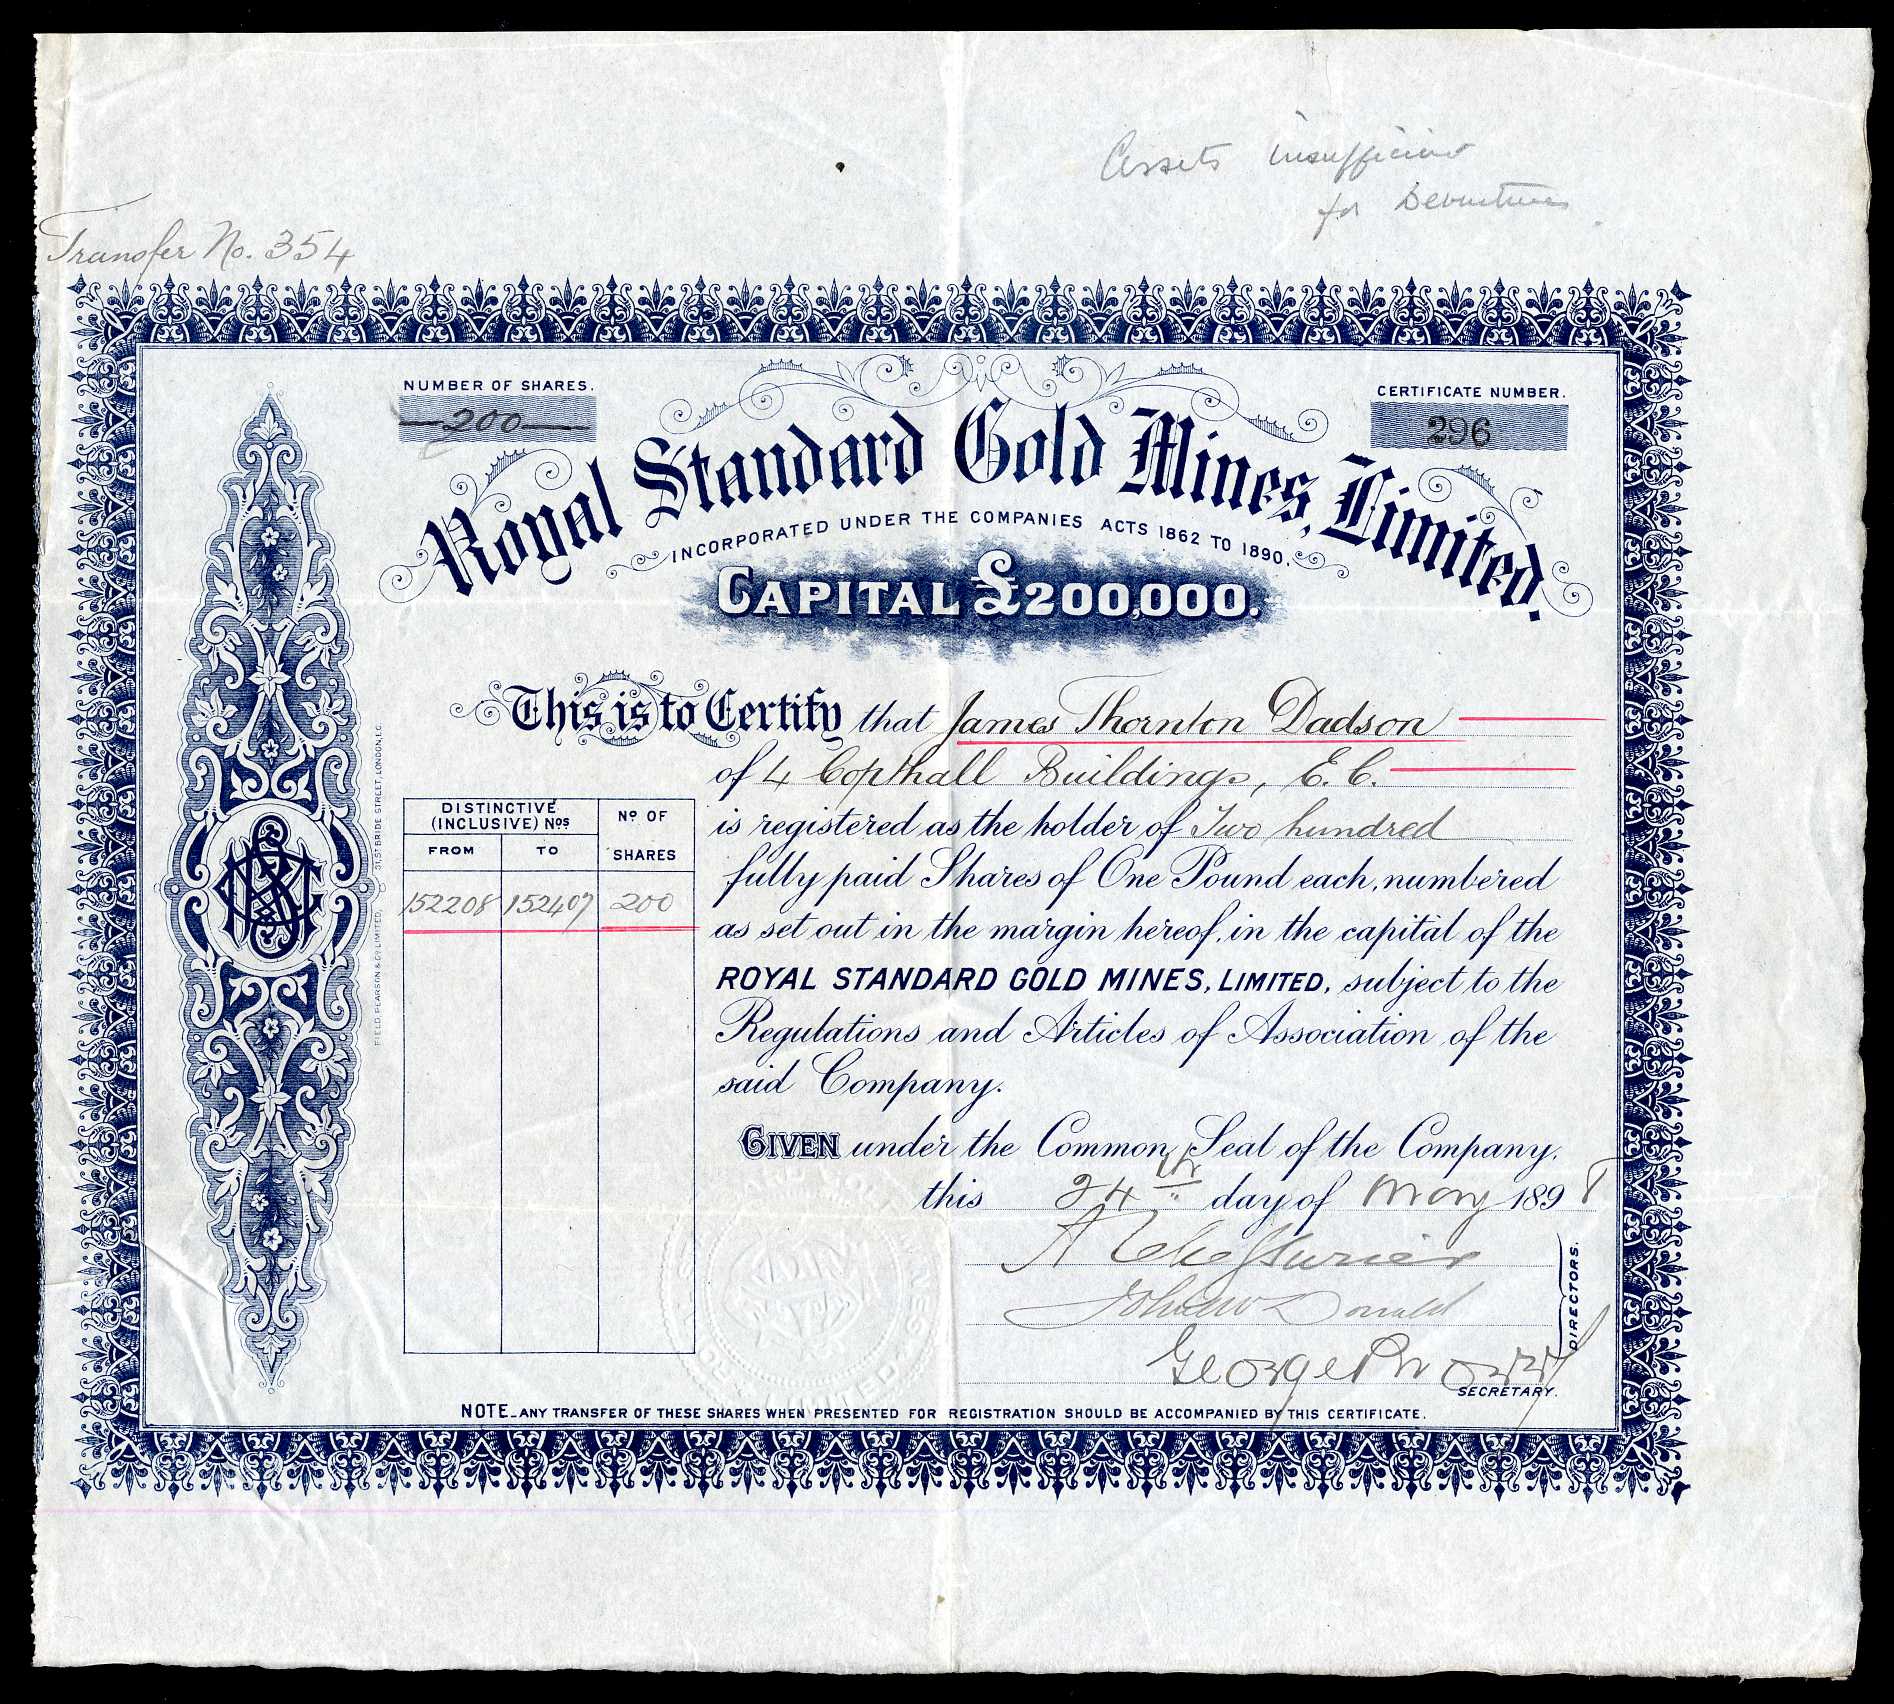 Assets insufficient
for Debentures
Transfer No. 354
NUMBER OF SHARES.
200
CERTIFICATE NUMBER.
296
Royal Standard Gold Mines, Limited.
INCORPORATED UNDER THE COMPANIES ACTS 1862 TO 1890.
CAPITAL £200,000.
This is to Certify that James Thornton Dadson
of 4 Copthall Buildings, E.C.
is registered as the holder of Two hundred
fully paid Shares of One Pound each, numbered
as set out in the margin hereof, in the capital of the
ROYAL STANDARD GOLD MINES, LIMITED, subject to the
Regulations and Articles of Association of the
said Company.
DISTINCTIVE (INCLUSIVE) Nos
Nº OF SHARES
FROM TO
152208 152407 200
GIVEN under the Common Seal of the Company,
this 24th day of May 1898
John McDonald
DIRECTORS.
George
SECRETARY.
NOTE_ANY TRANSFER OF THESE SHARES WHEN PRESENTED FOR REGISTRATION SHOULD BE ACCOMPANIED BY THIS CERTIFICATE.
FIELD, PEARSON & Co LIMITED, 31, ST BRIDE STREET, LONDON, E.C.